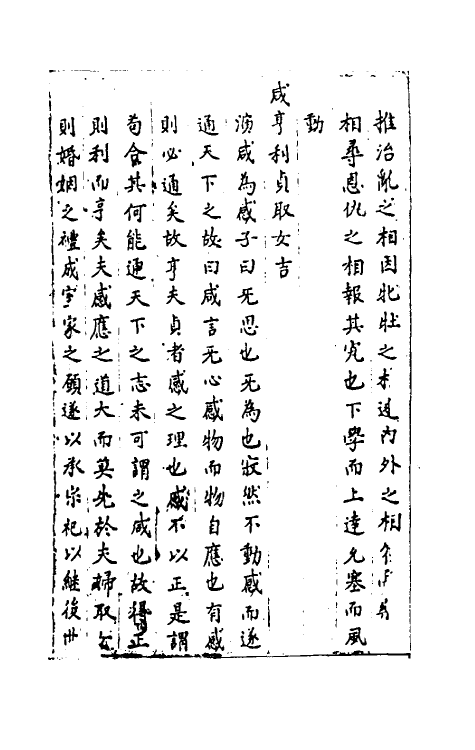 推治亂之相因牝牡之求逑内外之相
相尋恩仇之相報其究也下學而上達允塞而風
動
咸亨利貞取女吉
演咸為感子曰无思也无為也寂然不動感而遂
通天下之故曰咸言无心感物而物自應也有感
則必通矣故亨夫貞者感之理也感不以正是謂
苟合其何能通天下之志未可謂之咸也故得正
則利而亨矣夫感應之道大而莫先於夫婦取女
則婚姻之禮成室家之願遂以承宗祀以繼後世